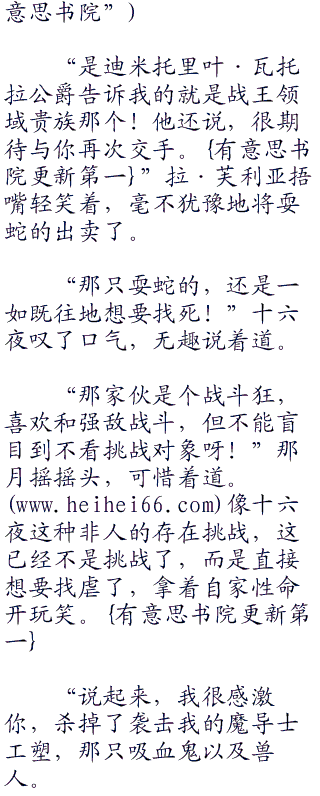 意思书院”)
“是迪米托里叶·瓦托
拉公爵告诉我的就是战王领
域贵族那个！他还说，很期
待与你再次交手。{有意思书
院更新第一}”拉·芙利亚捂
嘴轻笑着，毫不犹豫地将耍
蛇的出卖了。
“那只耍蛇的，还是一
如既往地想要找死！”十六
夜叹了口气，无趣说着道。
“那家伙是个战斗狂，
喜欢和强敌战斗，但不能盲
目到不看挑战对象呀！”那
月摇摇头，可惜着道。
(www.heihei66.com)像十六
夜这种非人的存在挑战，这
已经不是挑战了，而是直接
想要找虐了，拿着自家性命
开玩笑。{有意思书院更新第
一}
“说起来，我很感激
你，杀掉了袭击我的魔导士
工塑，那只吸血鬼以及兽
人。